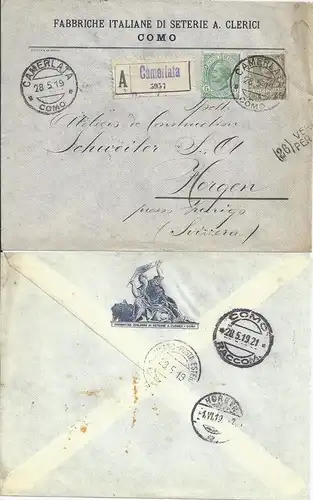 FABBRICHE ITALIANE DI SETERIE A. CLERICI
COMO
CAMERLATA
28.5.19
COMO
A
Camerlata
CAMERLATA
COMO
Spett.
Ateliers de Constructions
Schweiter S. A.
Horgen
(26)
VE
PER
(Svizzera)
FABBRICHE ITALIANE DI SETERIE A. CLERICI - COMO
COMO
28.5.19 21
RACCOM.
HORGEN